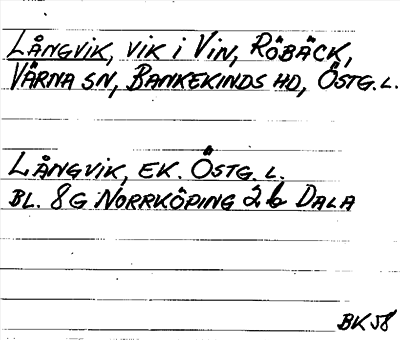 LÅNGVIK, VIK I VIN, RÖBÄCK,
VÄRNA SN, BANKEKINDS HD, ÖSTG. L.
LÅNGVIK, EK. ÖSTG. L.
BL. 8G NORRKÖPING 2b DALA
BK 58